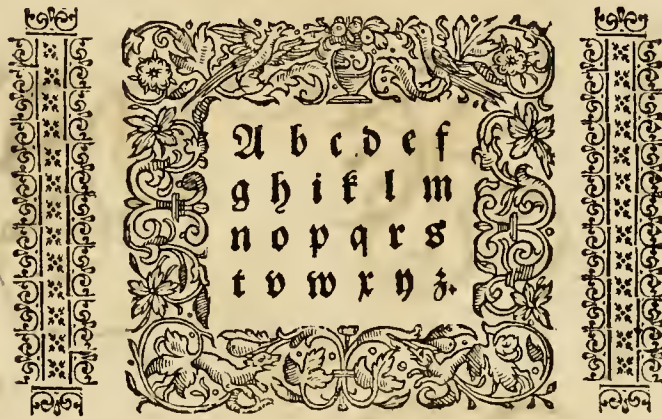 A b c d e f
g h i k l m
n o p q r s
t v w x y z.